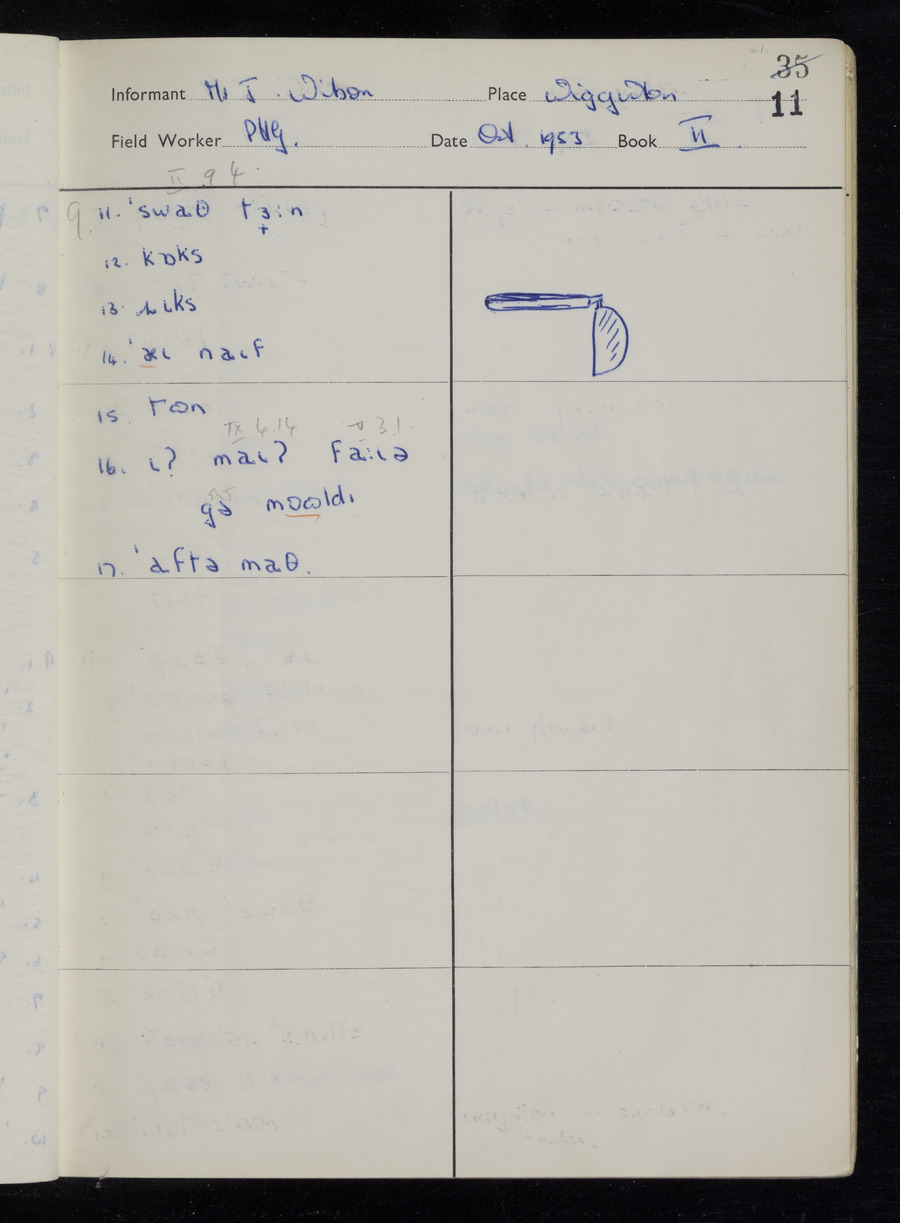 35
11
Informant Mr T. Wilson Place Wigginton
Field Worker PHG. Date Oct. 1953 Book II
II 9.4.
9. 11. ˈswaəθ tɜːn
12. kɒks
13. ɪks
14. ˈæɪ naɪf
15. rɒn
IX 4.14 V 3.1.
16. ɪʔ maɪʔ faːɪə
gə mɔʊldɪ
17. ˈaftə maθ.